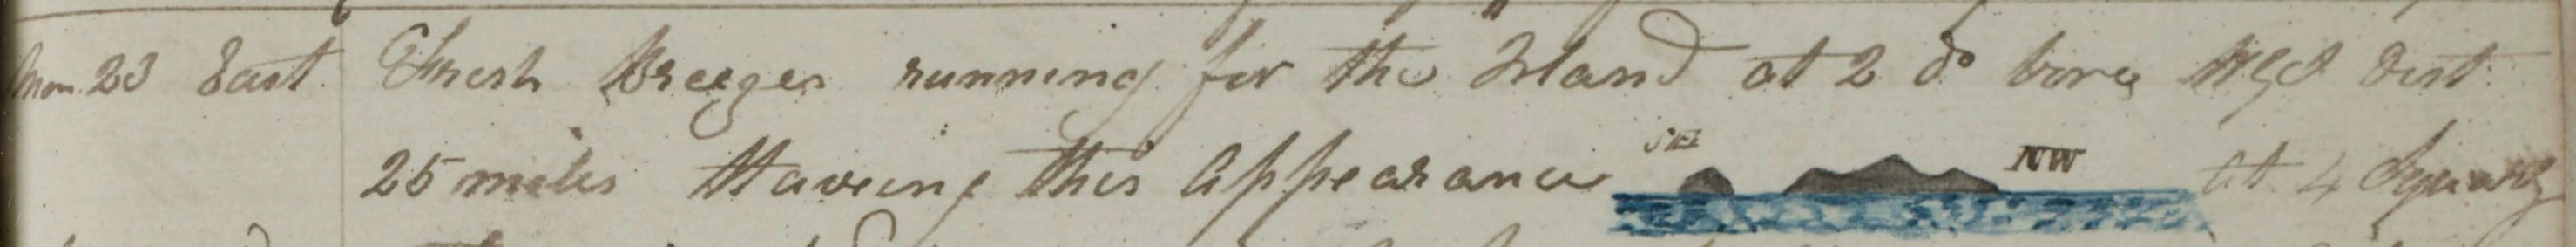 Mon. 23 East Fresh Breezes running for the Island at 2 do bore WSW dist
25 miles Haveing this Appearance SE NW At 4 Squary